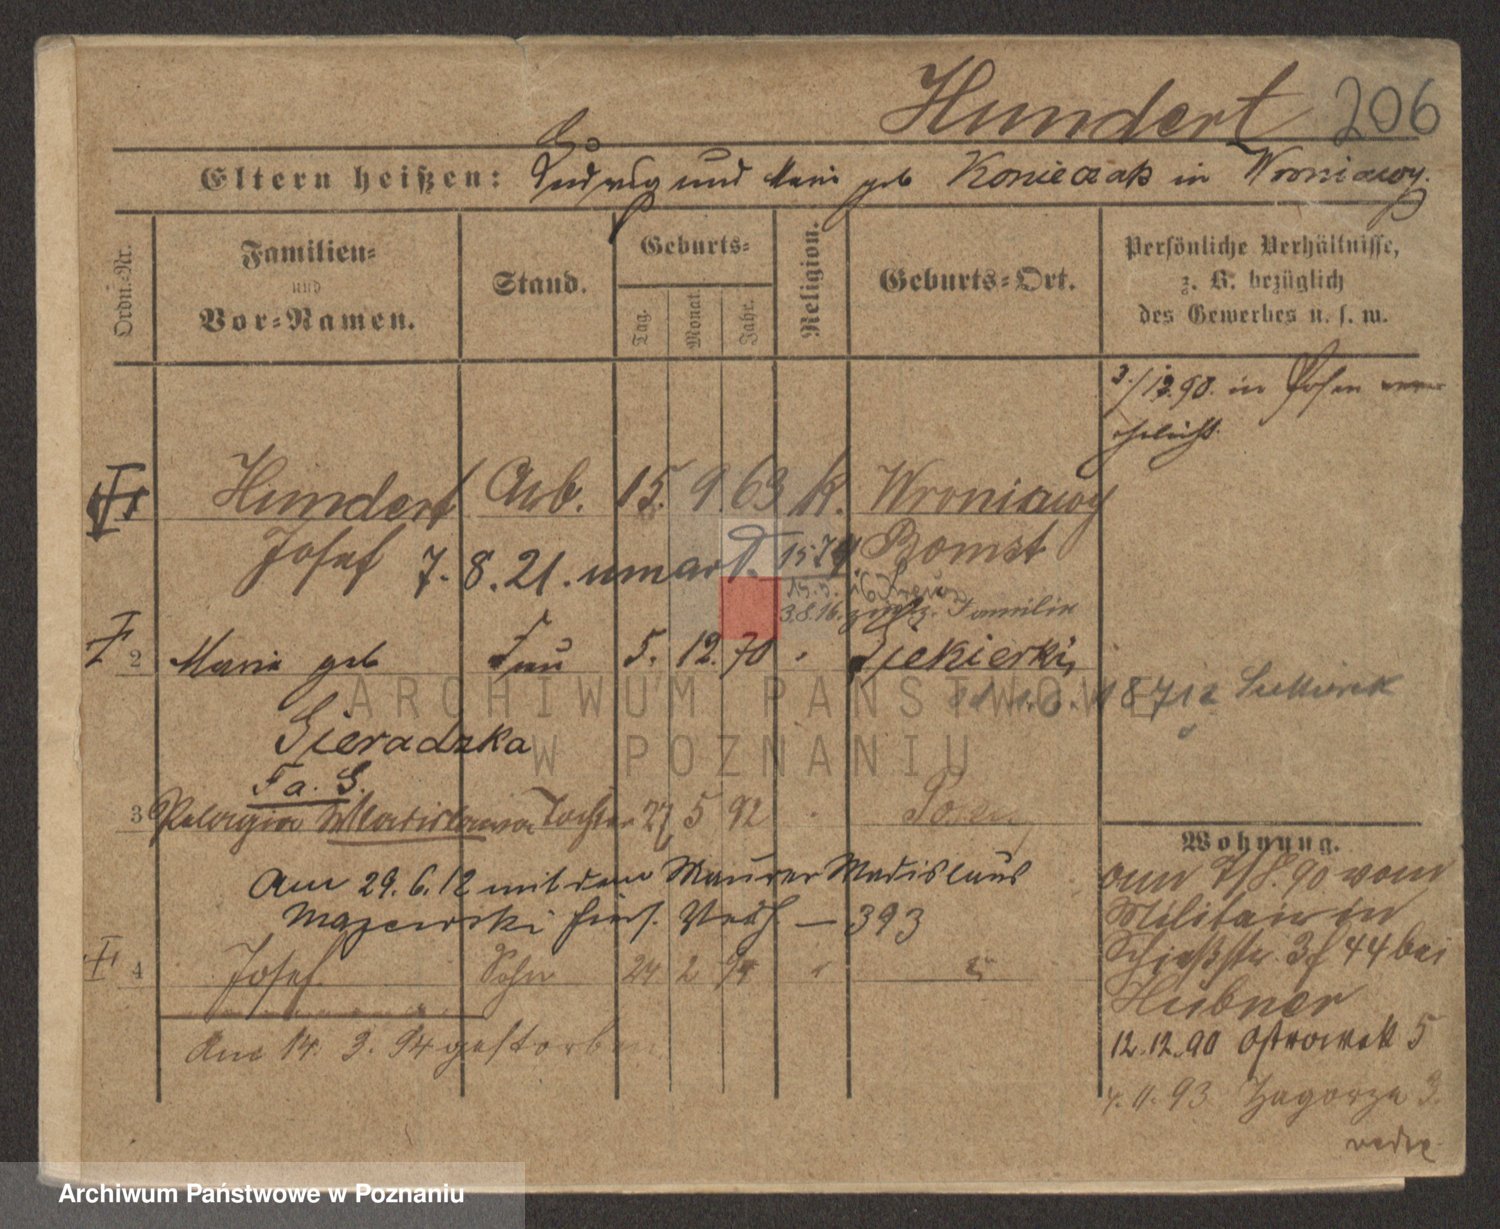 Hundert 206
Eltern heißen: Ludwig und Marie geb Konieczak in Wroniawy.
Ordn.-Nr.
Familien-
und
Vor-Namen.
Stand.
Geburts-
Tag.
Monat.
Jahr.
Religion.
Geburts-Ort.
Persönliche Verhältnisse,
z. B. bezüglich
des Gewerbes u. s. w.
3./12.90. in Posen ver
ehelicht.
1 Hundert Arb. 15. 9. 63 k. Wroniawy
Josef Bomst
7. 8. 21. umard.
3.8.16. Familie
2 Marie geb Frau 5. 12. 70 Siekierki
1871
Sieradzka
Fa. S.
3 Pelagia Wladislawa Tochter 27 5 92 Posen
Am 29. 6. 12 mit dem Maurer Wladislaus
Majewski hier. Verh. — 393
4 Josef Sohn 24 2 94
Am 14. 3. 94 gestorben
Wohnung.
am 7/8. 90 vom
Militair in
Schießstr. 3 44 bei
Hübner
12.12.90 Ostrowek 5
4. 11. 93 Zagorze 3
ARCHIWUM PAŃSTWOWE
W POZNANIU
Archiwum Państwowe w Poznaniu